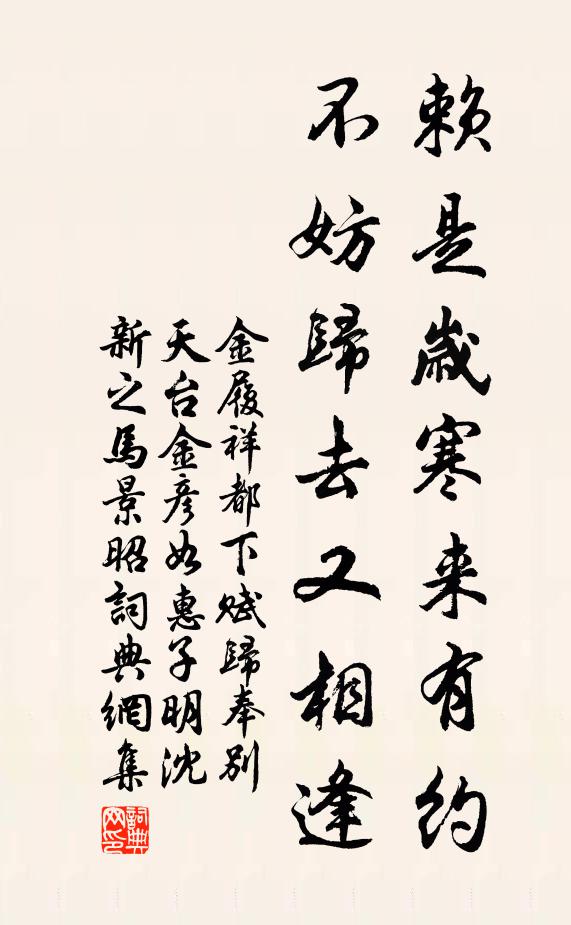 賴是歲寒来有約
不妨歸去又相逢
金履祥都下賦歸奉别
天台金彦如惠子明沈
新之馬景昭詞典網集
詞典网印